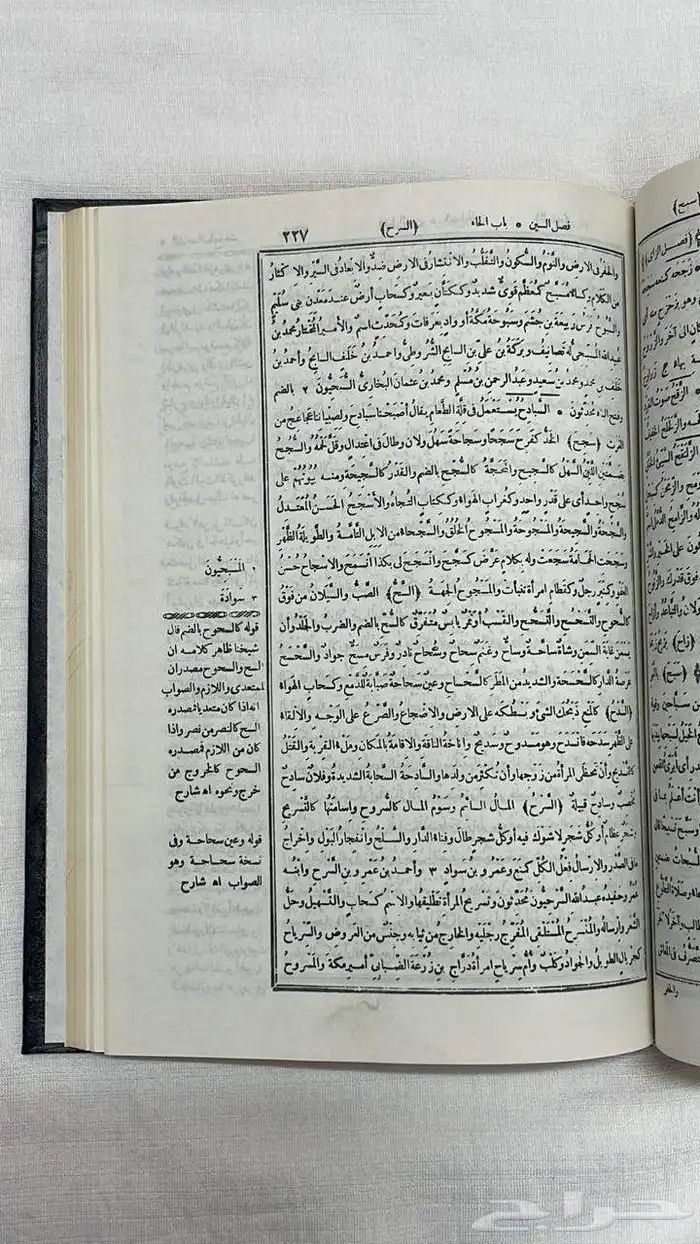 فصل السين * باب الحاء (السرح) ٢٢٧
والحفر في الارض والنوم والسكون والتقلب والانتشار في الارض ضد والابعاد في السير والاكثار
من الكلام وكساء مسبح كمعظم قوى شديد وككتان بعير وكسحاب أرض عند معدن بنى سليم
والسبوح فرس ربيعة بن جشم وسبوحة مكة أو واد بعرفات وكمحدث اسم والأمير المختار محمد بن
عبيد الله المسبحى له تصانيف وبركة بن على بن السابح الشروطى وأحمد بن خلف السابح وأحمد بن
خلف بن محمد ومحمد بن سعيد وعبد الرحمن بن مسلم ومحمد بن عثمان البخارى السبحيون ٢ بالضم
وفتح الباء محدثون * السبادح يستعمل في قلة الطعام يقال أصبحنا سبادح ولصبياننا عجاعج من
الغرث (سجح) الخد كفرح سجحا وسجاحة سهل ولان وطال في اعتدال وقل لحمه والسجح
بضمتين اللين السهل كالسجيح والمحجة كالسجح بالضم والقدر كالسجيحة ومنه بيوتهم على
سجح واحد أى على قدر واحد وكغراب الهواء وككتاب التجاه والأسجح الحسن المعتدل
والسجحة والسجيحة والمسجوحة والمسجوح الخلق والسجحاء من الابل التامة والطويلة الظهر
وسجحت الحمامة سجعت وله بكلام عرض كسجح وانسجح لى بكذا انسمح والاسجاح حسن
العفو وكمنبر رجل وكقطام امرأة تنبأت والمسجوح الجهة (السح) الصب والسيلان من فوق
كالسحوح والتسحسح والتسحح والقسب أو تمر يابس متفرق كالسح بالضم والضرب والجلد وأن
يسمن غاية السمن وشاة ساحة وساح وغنم سحاح وسحاح نادر وفرس مسح جواد والسحسح
عرصة الدار كالسحسحة والشديد من المطر كالسحساح وعين سحاحة صبابة للدمع وكسحاب الهواء
(السدح) كالمنع ذبحك الشئ وبسطكه على الارض والاضجاع والصرع على الوجه والالقاء
على الظهر سدحه فانسدح وهو مسدوح وسديح واناخة الناقة والاقامة بالمكان وملء القربة والقتل
كالتسديح وأن تحظى المرأة من زوجها وأن تكثر من ولدها والسادحة السحابة الشديدة وفلان سادح
مخصب وسادح قبيلة (السرح) المال السائم وسوم المال كالسروح واسامتها كالتسريح
وشجر عظام أو كل شجر لا شوك فيه أو كل شجر طال وفناء الدار والسلح وانفجار البول واخراج
ما في الصدر والارسال فعل الكل كمنع وعمرو بن سواد ٣ وأحمد بن عمرو بن السرح وابنه
عمر وحفيده عبد الله السرحيون محدثون وتسريح المرأة تطليقها والاسم كسحاب والتسهيل وحل
الشعر وارساله والمنسرح المستلقى المفرج رجليه والخارج من ثيابه وجنس من العروض والسرياح
كجريال الطويل والجواد وكلب وأم سرياح امرأة دراج بن زرعة الضبابى أمير مكة والمسروح
٢ المسبحيون
٣ سوادة
قوله كالسحوح بالضم قال
شيخنا ظاهر كلامه ان
السح والسحوح مصدران
لمتعدى واللازم والصواب
انه اذا كان متعديا فمصدره
السح كالنصر من نصر واذا
كان من اللازم فمصدره
السحوح كالخروج من
خرج ونحوه اه شارح
قوله وعين سحاحة وفى
نسخة سحساحة وهو
الصواب اه شارح
والحفر
حراج